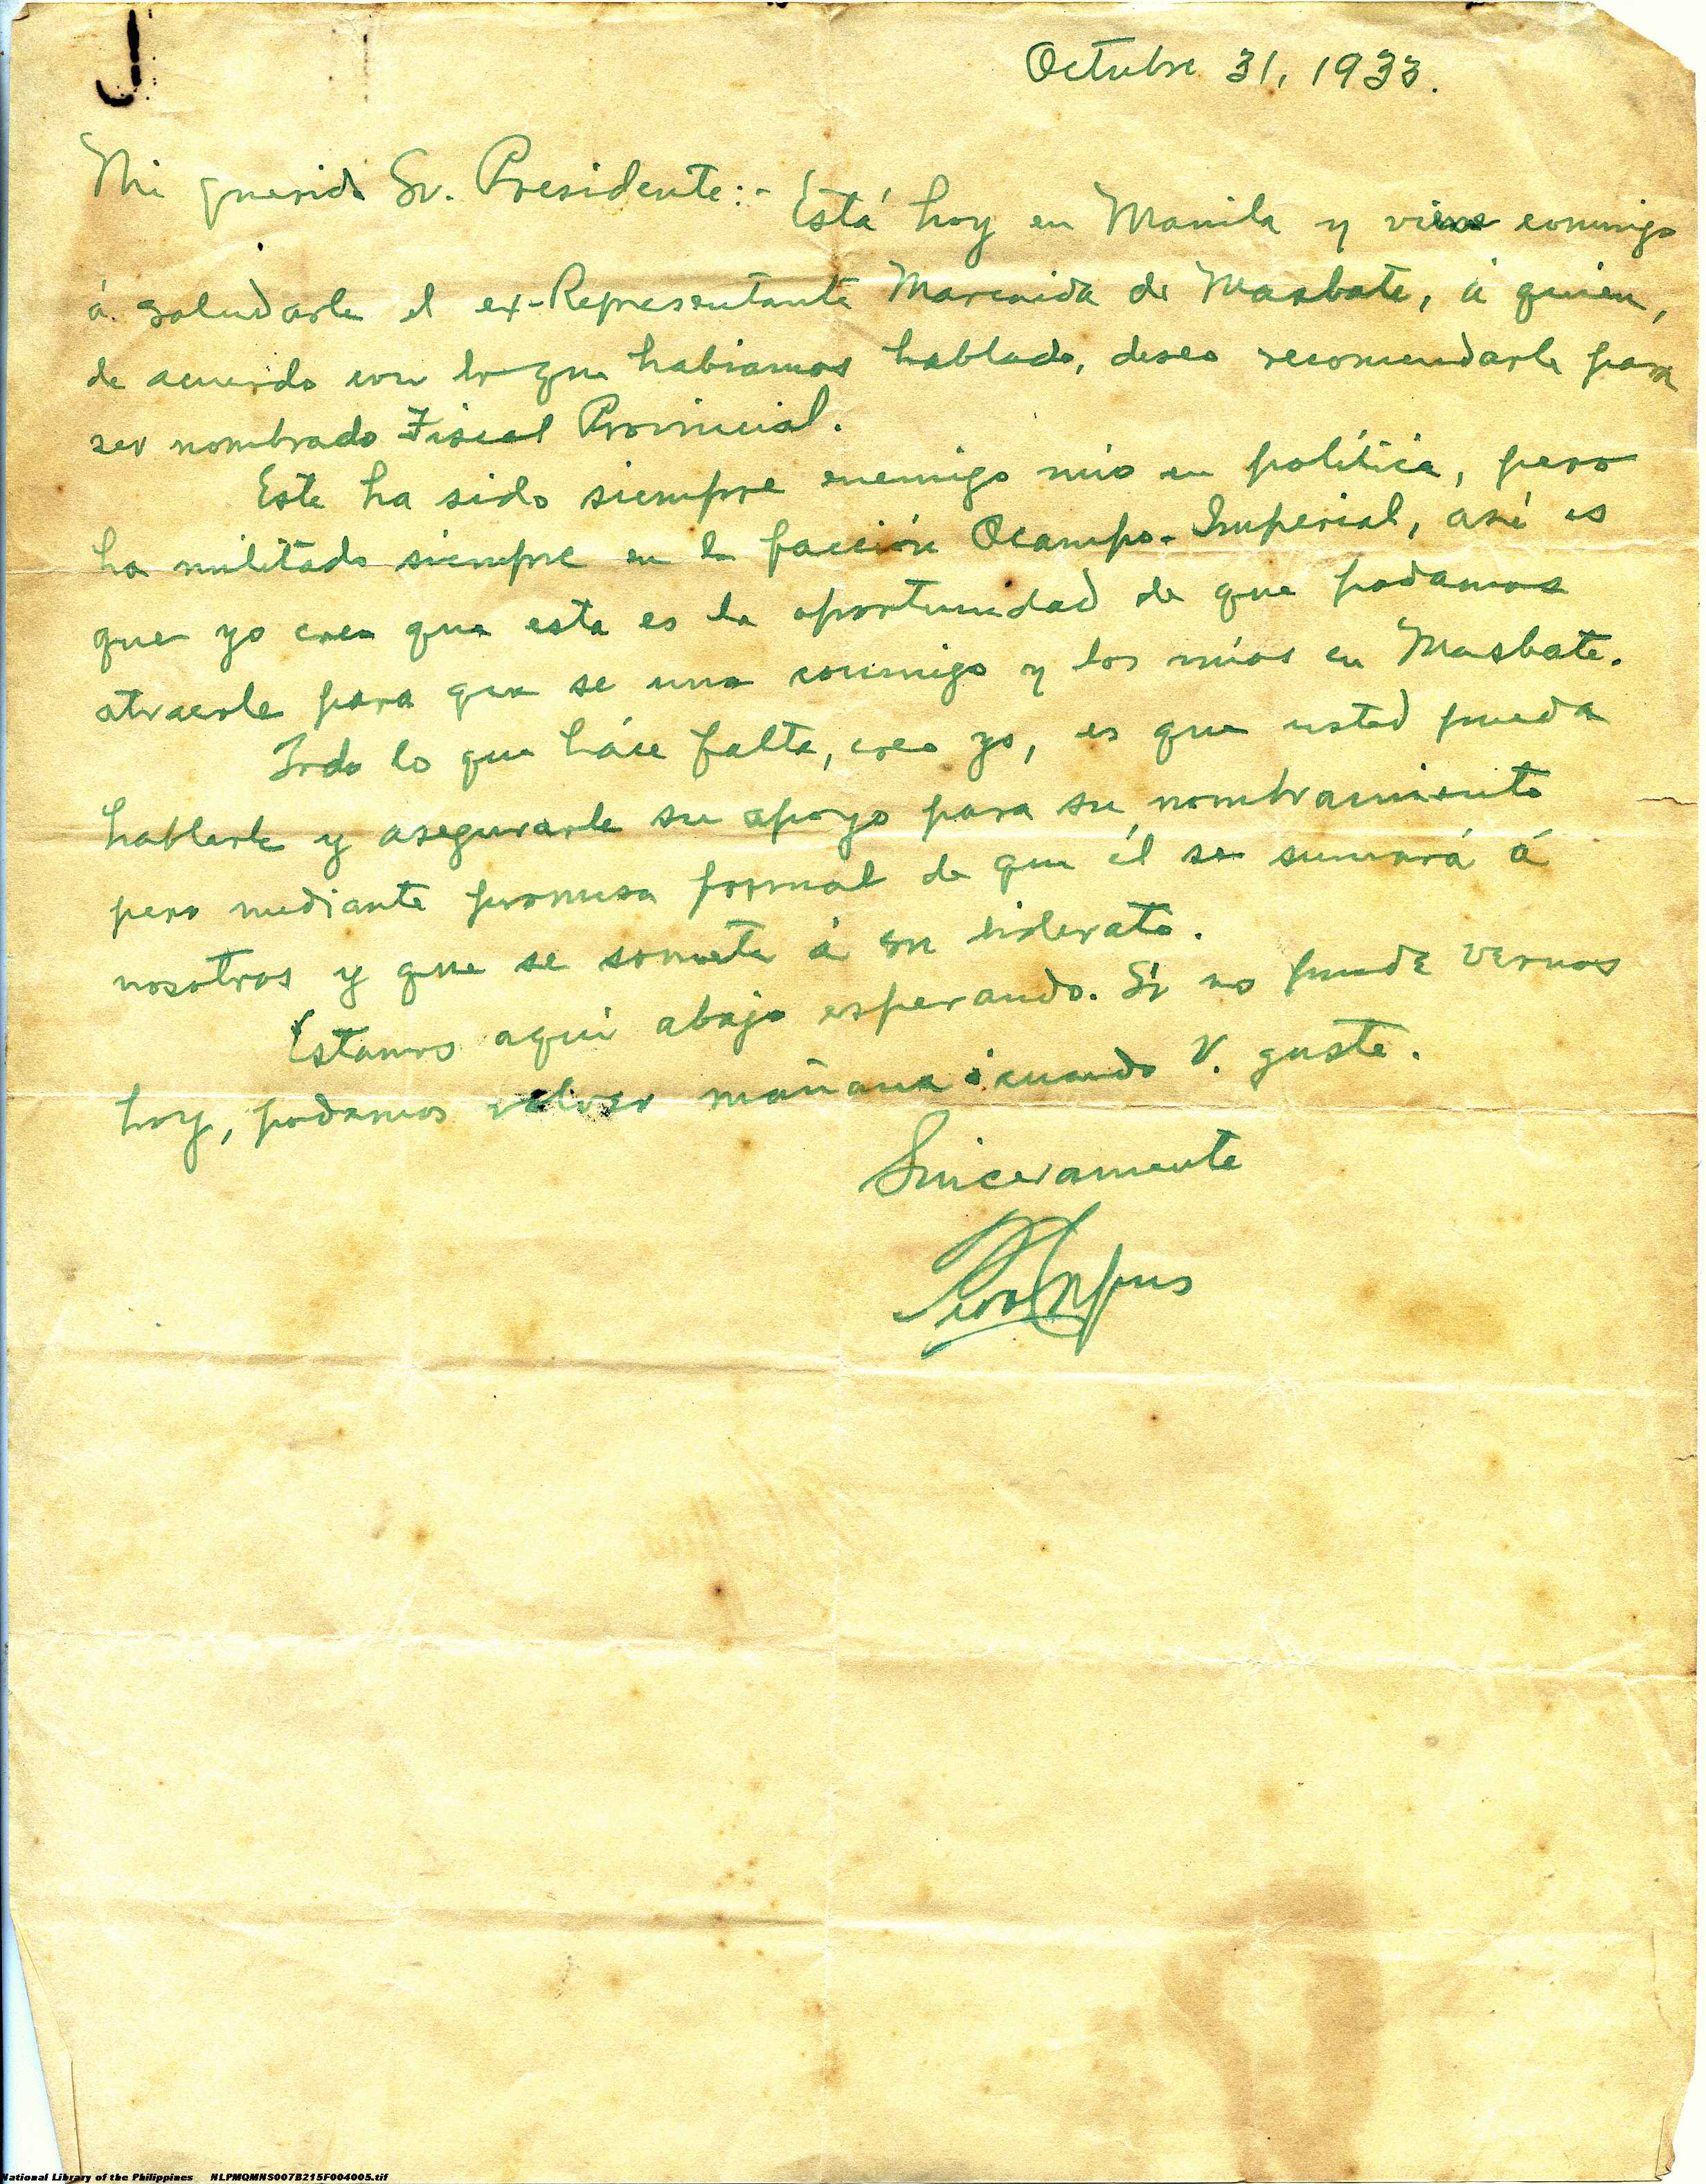 Octubre 31, 1933.
Mi querido Sr. Presidente:- Está hoy en Manila y viene conmigo
á saludarle el ex-Representante Marcaida de Masbate, á quien,
de acuerdo con lo que habiamos hablado, deseo recomendarle para
ser nombrado Fiscal Provincial.
Este ha sido siempre enemigo mio en política, pero
ha militado siempre en la facción Ocampo-Imperial, así es
que yo creo que esta es la oportunidad de que podamos
atraerle para que se una conmigo y los míos en Masbate.
Todo lo que háce falta, creo yo, es que usted pueda
hablarle y asegurarle su apoyo para su nombramiento
pero mediante promesa formal de que él se sumará á
nosotros y que se somete á su liderato.
Estamos aqui abajo esperando. Si no puede vernos
hoy, podamos volver mañana ó cuando V. guste.
Sinceramente
National Library of the Philippines NLPMQMNS007B215F004005.tif